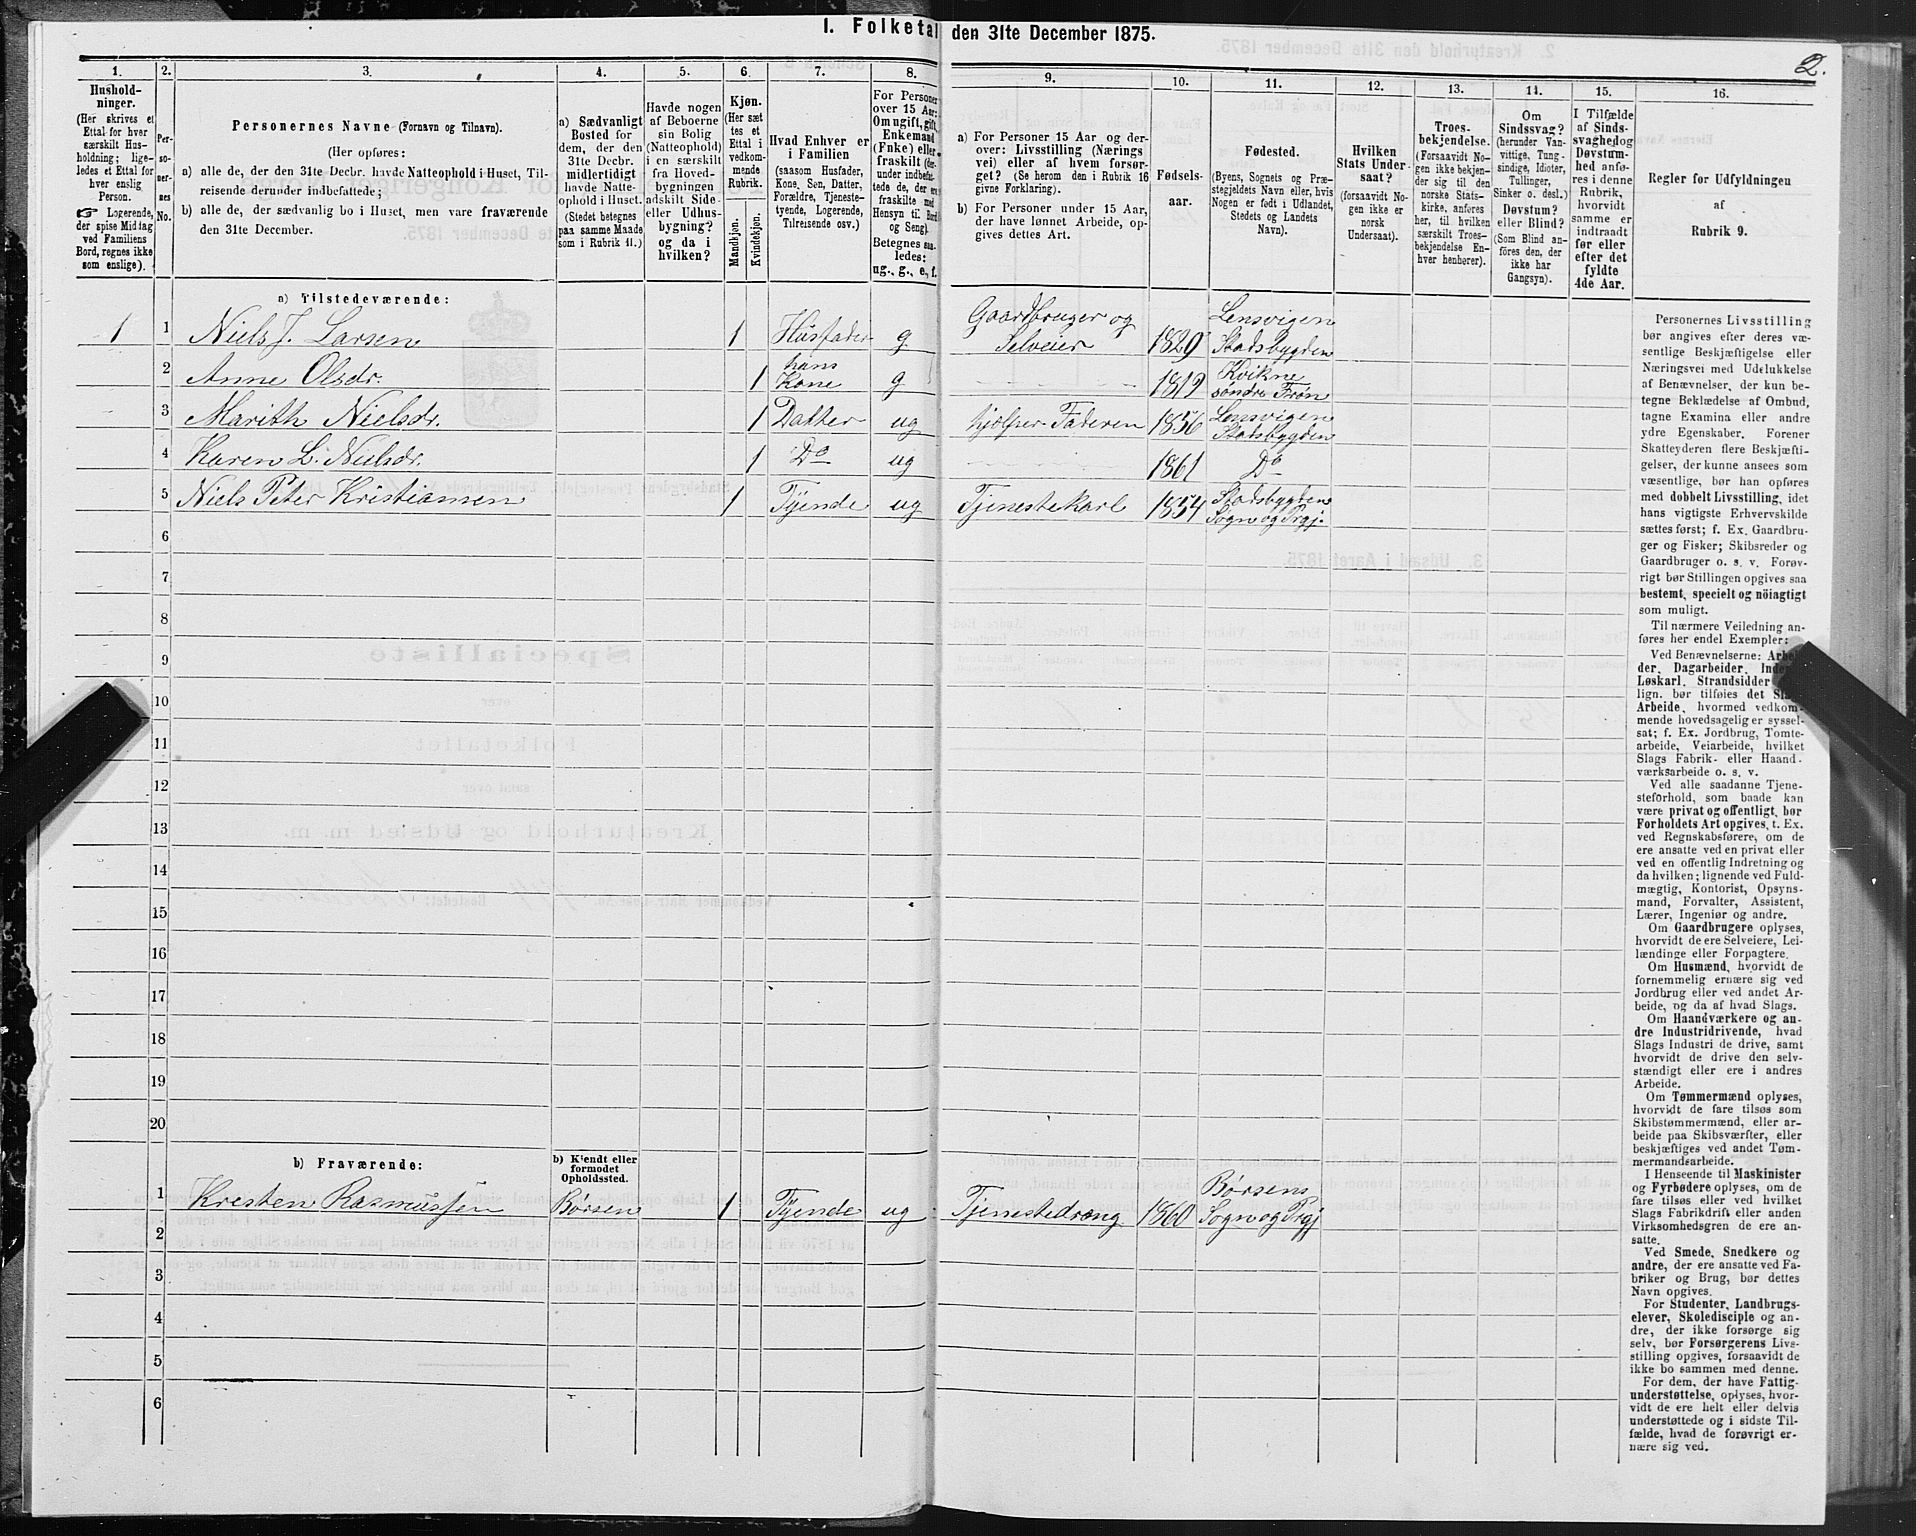 I. Folketal den 31te December 1875.
2.
1.
Hushold-
ninger.
(Her skrives et
Ettal for hver
særskilt Hus-
holdning; lige-
ledes et Ettal for
hver enslig
Person.
☞ Logerende,
der spise Middag
ved Familiens
Bord, regnes ikke
som enslige).
2.
Per-
so-
ner-
nes
No.
3.
Personernes Navne (Fornavn og Tilnavn).
(Her opføres:
a) alle de, der den 31te Decbr. havde Natteophold i Huset, Til-
reisende derunder indbefattede;
b) alle de, der sædvanlig bo i Huset, men vare fraværende
den 31te December.
4.
a) Sædvanligt
Bosted for
dem, der den
31te Decbr.
midlertidigt
havde Natte-
ophold i Huset.
(Stedet betegnes
paa samme Maade
som i Rubrik 11.)
5.
Havde nogen
af Beboerne
sin Bolig
(Natteophold)
i en særskilt
fra Hoved-
bygningen
adskilt Side-
eller Udhus-
bygning?
og da i
hvilken?
6.
Kjøn.
(Her sæt
tes et
Ettal i
vedkom-
mende
Rubrik.
Mandkjøn.
Kvindekjøn.
7.
Hvad Enhver er
i Familien
(saasom Husfader,
Kone, Søn, Datter,
Forældre, Tjeneste-
tyende, Logerende,
Tilreisende osv.)
8.
For Personer
over 15 Aar:
Om ugift, gift,
Enkemand
(Enke) eller
fraskilt (der-
under indbefat-
tede de, der ere
fraskilte med
Hensyn til Bord
og Seng).
Betegnes saa-
ledes:
ug., g., e., f.
9.
a) For Personer 15 Aar og der-
over: Livsstilling (Nærings
vei) eller af hvem forsør-
get? (Se herom den i Rubrik 16
givne Forklaring).
b) For Personer under 15 Aar,
der have lønnet Arbeide, op-
gives dettes Art.
10.
Fødsels-
aar.
11.
Fødested.
(Byens, Sognets og Præ-
stegjeldets Navn eller, hvis
Nogen er født i Udlandet,
Stedets og Landets
Navn).
12.
Hvilken
Stats Under-
saat?
(forsaavidt No-
gen ikke er
norsk
Undersaat).
13.
Troes-
bekjendelse.
(Forsaavidt No-
gen ikke bekjen-
der sig til den
norske Stats-
kirke, anføres
her, til hvilken
særskilt Troes-
bekjendelse En-
hver henhører).
14.
Om
Sindssvag?
(herunder Van-
vittige, Tung-
sindige, Idioter,
Tullinger,
Sinker o. desl.)
Døvstum?
eller Blind?
(Som Blind an-
føres den, der
ikke har
Gangsyn).
15.
I Tilfælde
af Sinds-
svaghed og
Døvstum-
hed anfø-
res i denne
Rubrik,
hvorvidt
samme er
indtraadt
før eller
efter det
fyldte
4de Aar.
16.
Regler for Udfyldningen
af
Rubrik 9.
a) Tilstedeværende:
1 1 Niels J. Larsen 1 Husfader g Gaardbruger og Selveier 1829 Lensvigen Stadsbygden
2 Anne Olsdr. 1 hans Kone g 1819 Kvikne søndre Frøn
3 Marith Nielsdr. 1 Datter ug hjelper Faderen 1856 Lensvigen Stadsbygden
4 Karen L. Nielsdr. 1 Do ug 1861 Do
5 Niels Peter Kristiansen 1 Tyende ug Tjenestekarl 1854 Stadsbygden Sogn og Prgj.
6
7
8
9
10
11
12
13
14
15
16
17
18
19
20
b) Fraværende:
b) Kjendt eller
formodet
Opholdssted.
1 Kresten Rasmussen Børsen 1 Tyende ug Tjenestedreng 1860 Børsens Sogn og Prgj
2
3
4
5
6
Personernes Livsstilling
bør angives efter deres væ-
sentlige Beskjæftigelse eller
Næringsvei med Udelukkelse
af Benævnelser, der kun be-
tegne Beklædelse af Ombud,
tagne Examina eller andre
ydre Egenskaber. Forener
Skatteyderen flere Beskjæfti-
gelser, der kunne ansees som
væsentlige, bør han opføres
med dobbelt Livsstilling, idet
hans vigtigste Erhvervskilde
sættes først; f. Ex. Gaardbru-
ger og Fisker; Skibsreder og
Gaardbruger o. s. v. Forøv-
rigt bør Stillingen opgives saa
bestemt, specielt og nöiagtigt
som muligt.
Til nærmere Veiledning an-
føres her endel Exempler:
Ved Benævnelserne: Arbei-
der, Dagarbeider, Inder
Løskarl, Strandsidder
lign. bør tilføies det Slags
Arbeide, hvormed vedkom-
mende hovedsagelig er syssel-
sat; f. Ex. Jordbrug, Tomte-
arbeide, Veiarbeide, hvilket
Slags Fabrik- eller Haand-
værksarbeide o. s. v.
Ved alle saadanne Tjene-
steforhold, som baade kan
være privat og offentligt, bør
Forholdets Art opgives, t. Ex.
ved Regnskabsførere, om de
ere ansatte ved en privat eller
ved en offentlig Indretning og
da hvilken; lignende ved Fuld-
mægtig, Kontorist, Opsyns-
mand, Forvalter, Assistent,
Lærer, Ingeniør og andre.
Om Gaardbrugere oplyses,
hvorvidt de ere Selveiere, Lei-
lændinge eller Forpagtere.
Om Husmænd, hvorvidt de
fornemmelig ernære sig ved
Jordbrug eller ved andet Ar-
beide, og da af hvad Slags.
Om Haandværkere og an-
dre Industridrivende, hvad
Slags Industri de drive, samt
hvorvidt de drive den selv-
stændigt eller ere i andres
Arbeide.
Om Tømmermænd oplyses,
hvorvidt de fare tilsøs som
Skibstømmermænd, eller ar-
beide paa Skibsværfter, eller
beskjæftiges ved andet Tøm-
mermandsarbeide.
I Henseende til Maskinister
og Fyrbødere oplyses, om de
fare tilsøs eller ved hvilket
Slags Fabrikdrift eller anden
Virksomhedsgren de ere an-
satte.
Ved Smede, Snedkere og
andre, der ere ansatte ved Fa-
briker og Brug, bør dettes
Navn opgives.
For Studenter, Landbrugs-
elever, Skoledisciple og an-
dre, der ikke forsørge sig
selv, bør Forsørgerens Livs-
stilling opgives, forsaavidt de
ikke bo sammen med denne.
For dem, der have Fattig-
understøttelse, oplyses, hvor-
vidt de ere helt eller delvis
understøttede og i sidste Til-
fælde, hvad de forøvrigt er-
nære sig ved.